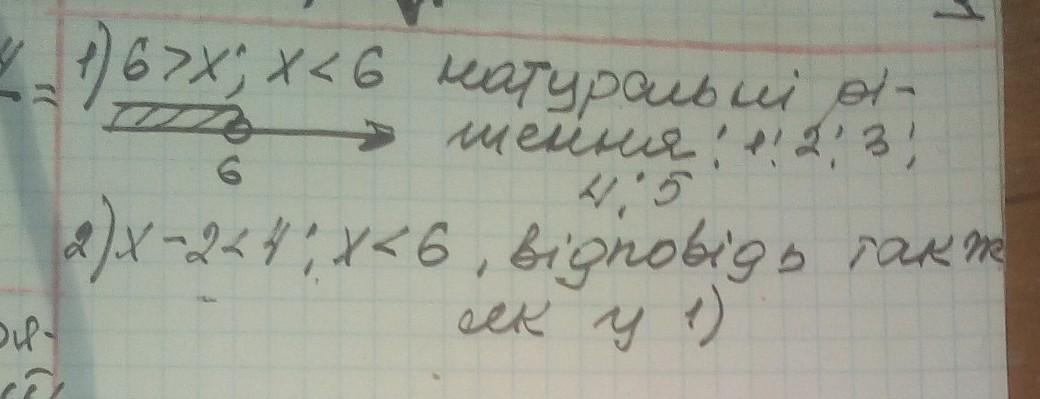 1) 6 > x; x < 6 натуральні
6
шення: 1; 2; 3;
4; 5
2) x - 2 < 4; x < 6, відповідь так ж
як у 1)